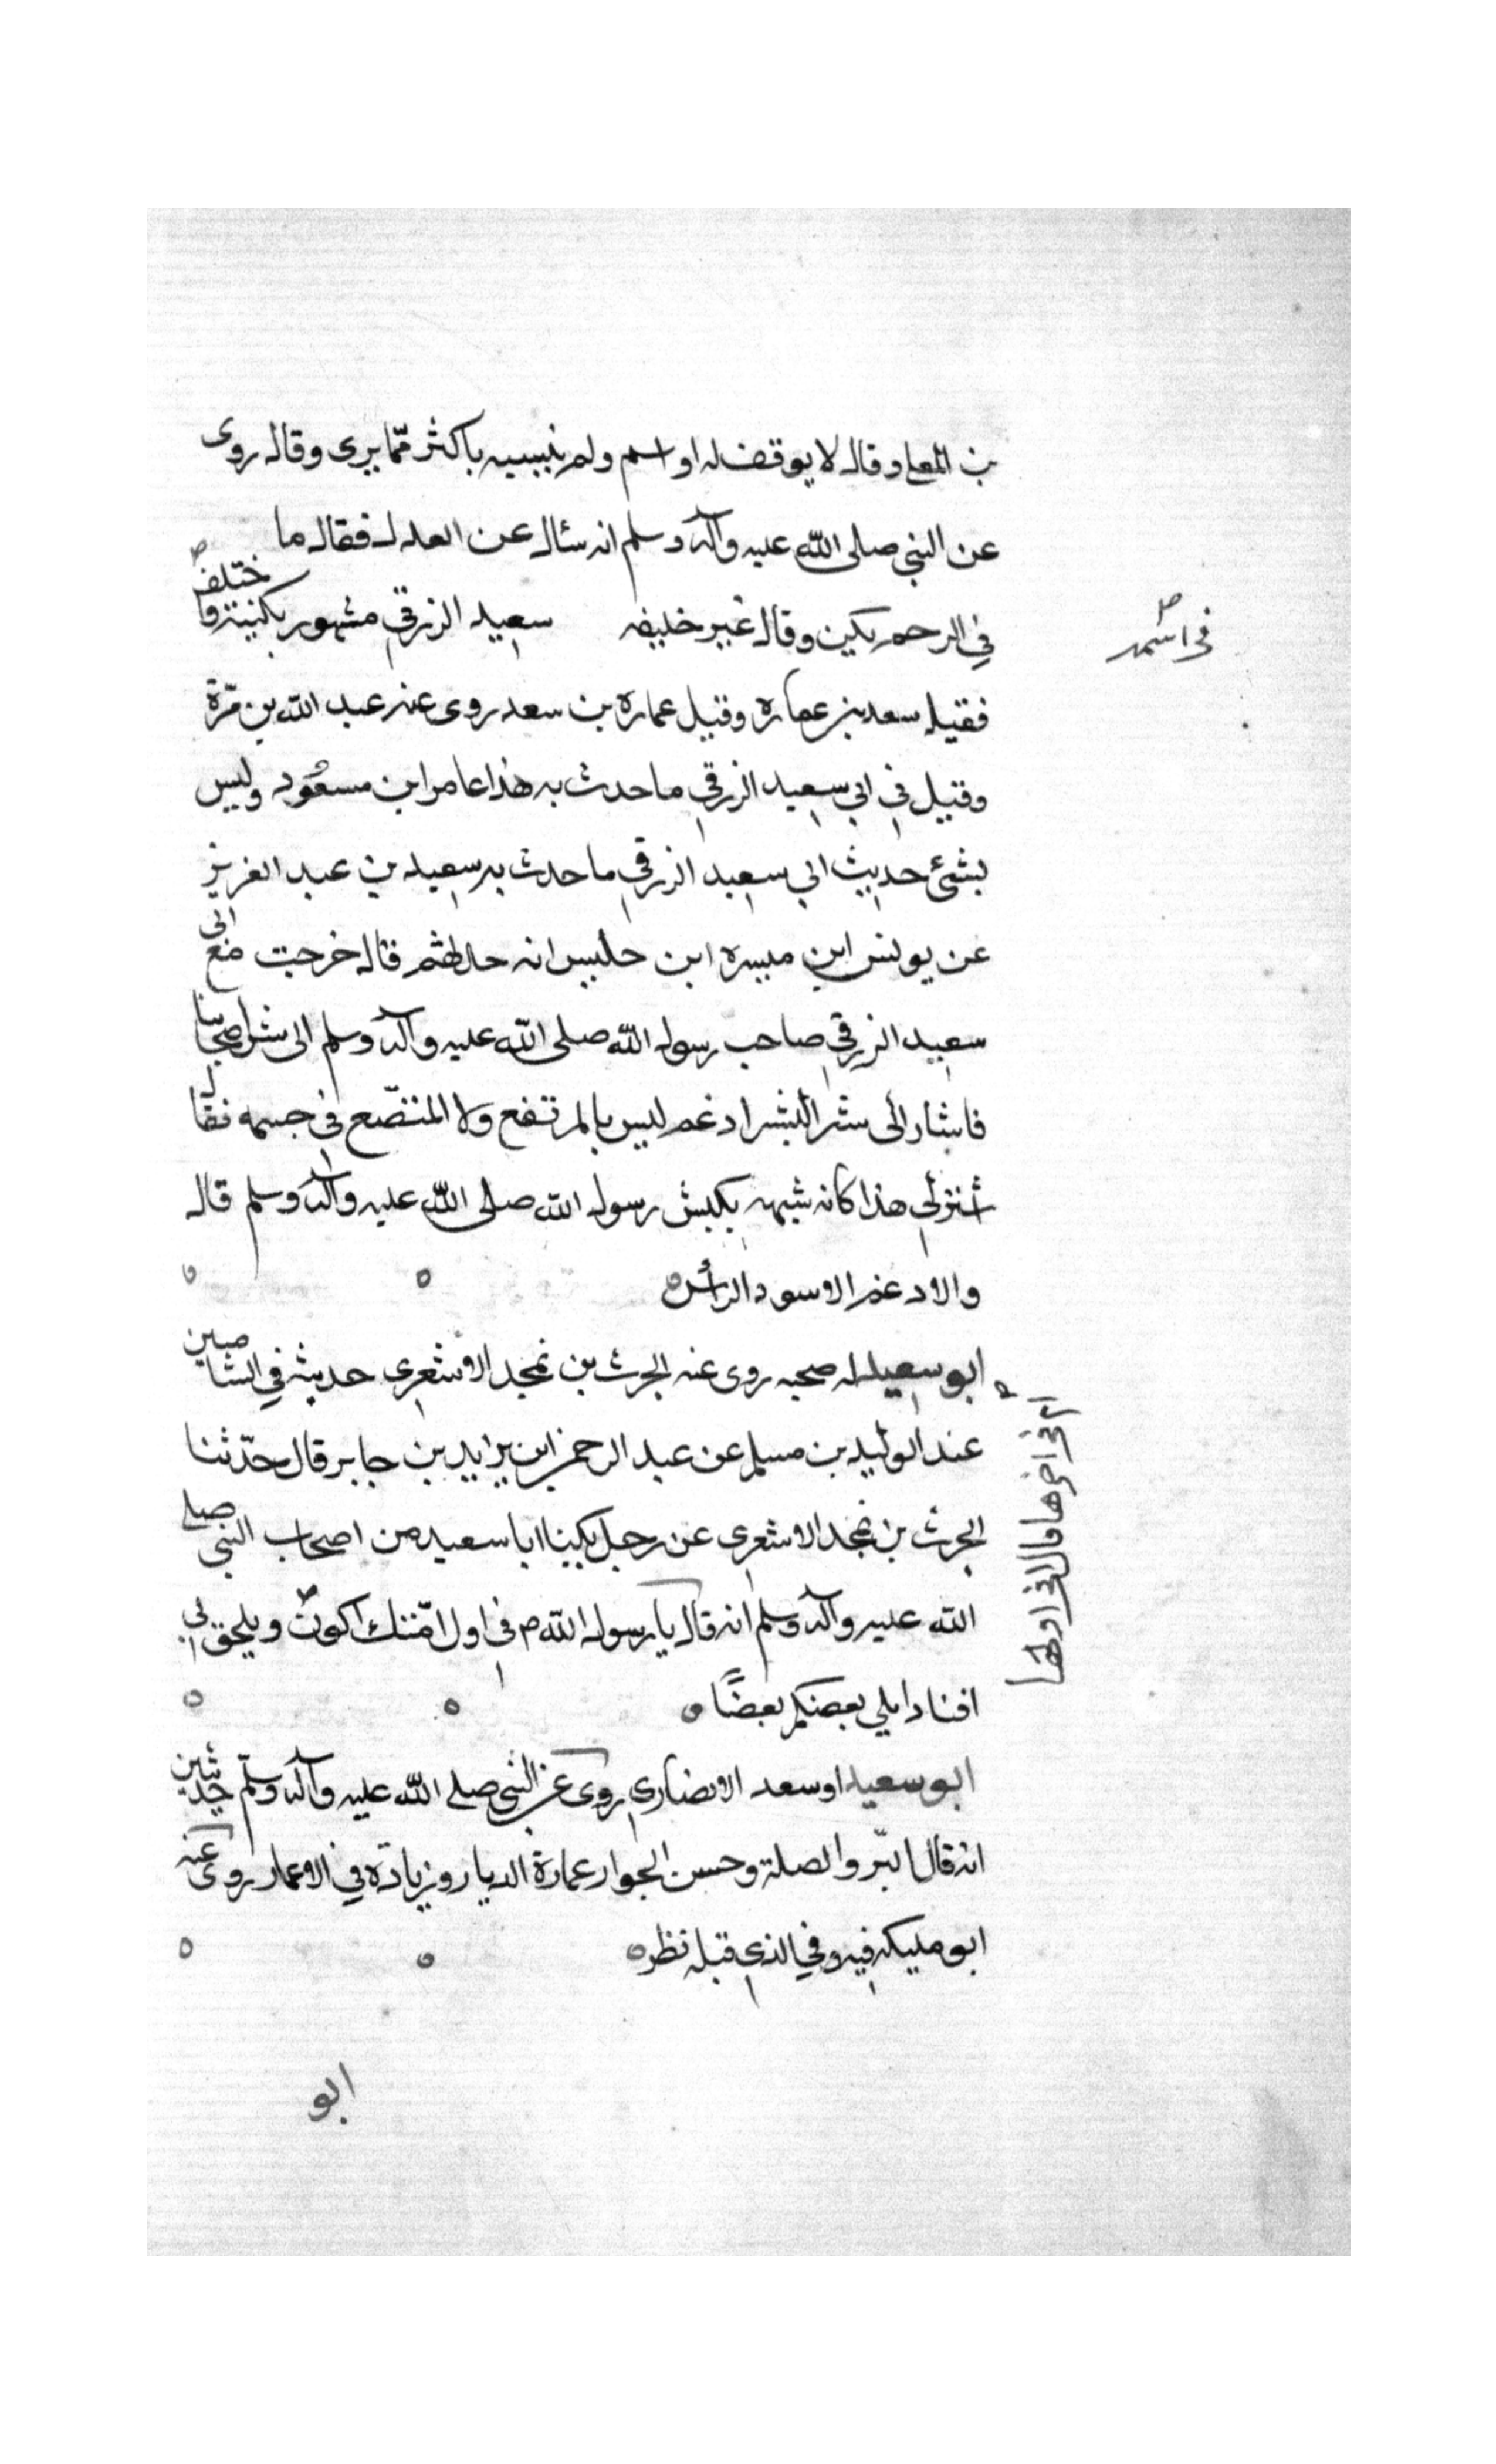 بن المعلى وقال لا يوقف له او اسم ولم ينسبه باكثر ممّا يرى وقال روى
عن النبي صلى الله عليه وآله وسلم انه سئال عن العدل فقال ما
في الرحم يكين وقال غير خليفه سعيد الزرقي مشهور بكنيته واختلف
في اسمه
فقيل سعد بن عمارة وقيل عمارة بن سعد روى عنه عبد الله بن مرّة
وقيل في ابي سعيد الزرقي ما حدث به هذا عامر ابن مسعود وليس
بشئ حديث ابي سعيد الزرقي ما حدث به سعيد بن عبد العزيز
عن يونس ابن ميسرة ابن حلبس انه قال خرجت مع ابى
سعيد الزرقي صاحب رسول الله صلى الله عليه وآله وسلم الى شرا اضحايا
فاشار الى كبش ادغم ليس بالمرتفع ولا المتضع في جسمه فقال
اشترلي هذا كانه شبهه بكبش رسول الله صلى الله عليه وآله وسلم قال
والادغم الاسود الرأس
ابو سعيد له صحبه روى عنه الحرث بن يمجد الاشعرى حديثه في الشاميين
عند الوليد بن مسلم عن عبد الرحمن ابن يزايد بن جابر قال حدّثنا
الحرث بن يمجد الاشعرى عن رجل يكينا ابا سعيد من اصحاب النبي صلى
الله عليه وآله وسلم انه قال يا رسول الله في اول امّتك اكون ويلحق بي
ام في اخرها قال لا في اولها
افنادا يلي بعضكم بعضًا
ابو سعيد او سعد الانصاري روى عن النبي صلى الله عليه وآله وسلّم حديثين
انه قال البّر والصلة وحسن الجوار عمارة الديار وزيادة في الاعمار روى عنه
ابو مليكه فيه وفي الذي قبله نظر
ابو